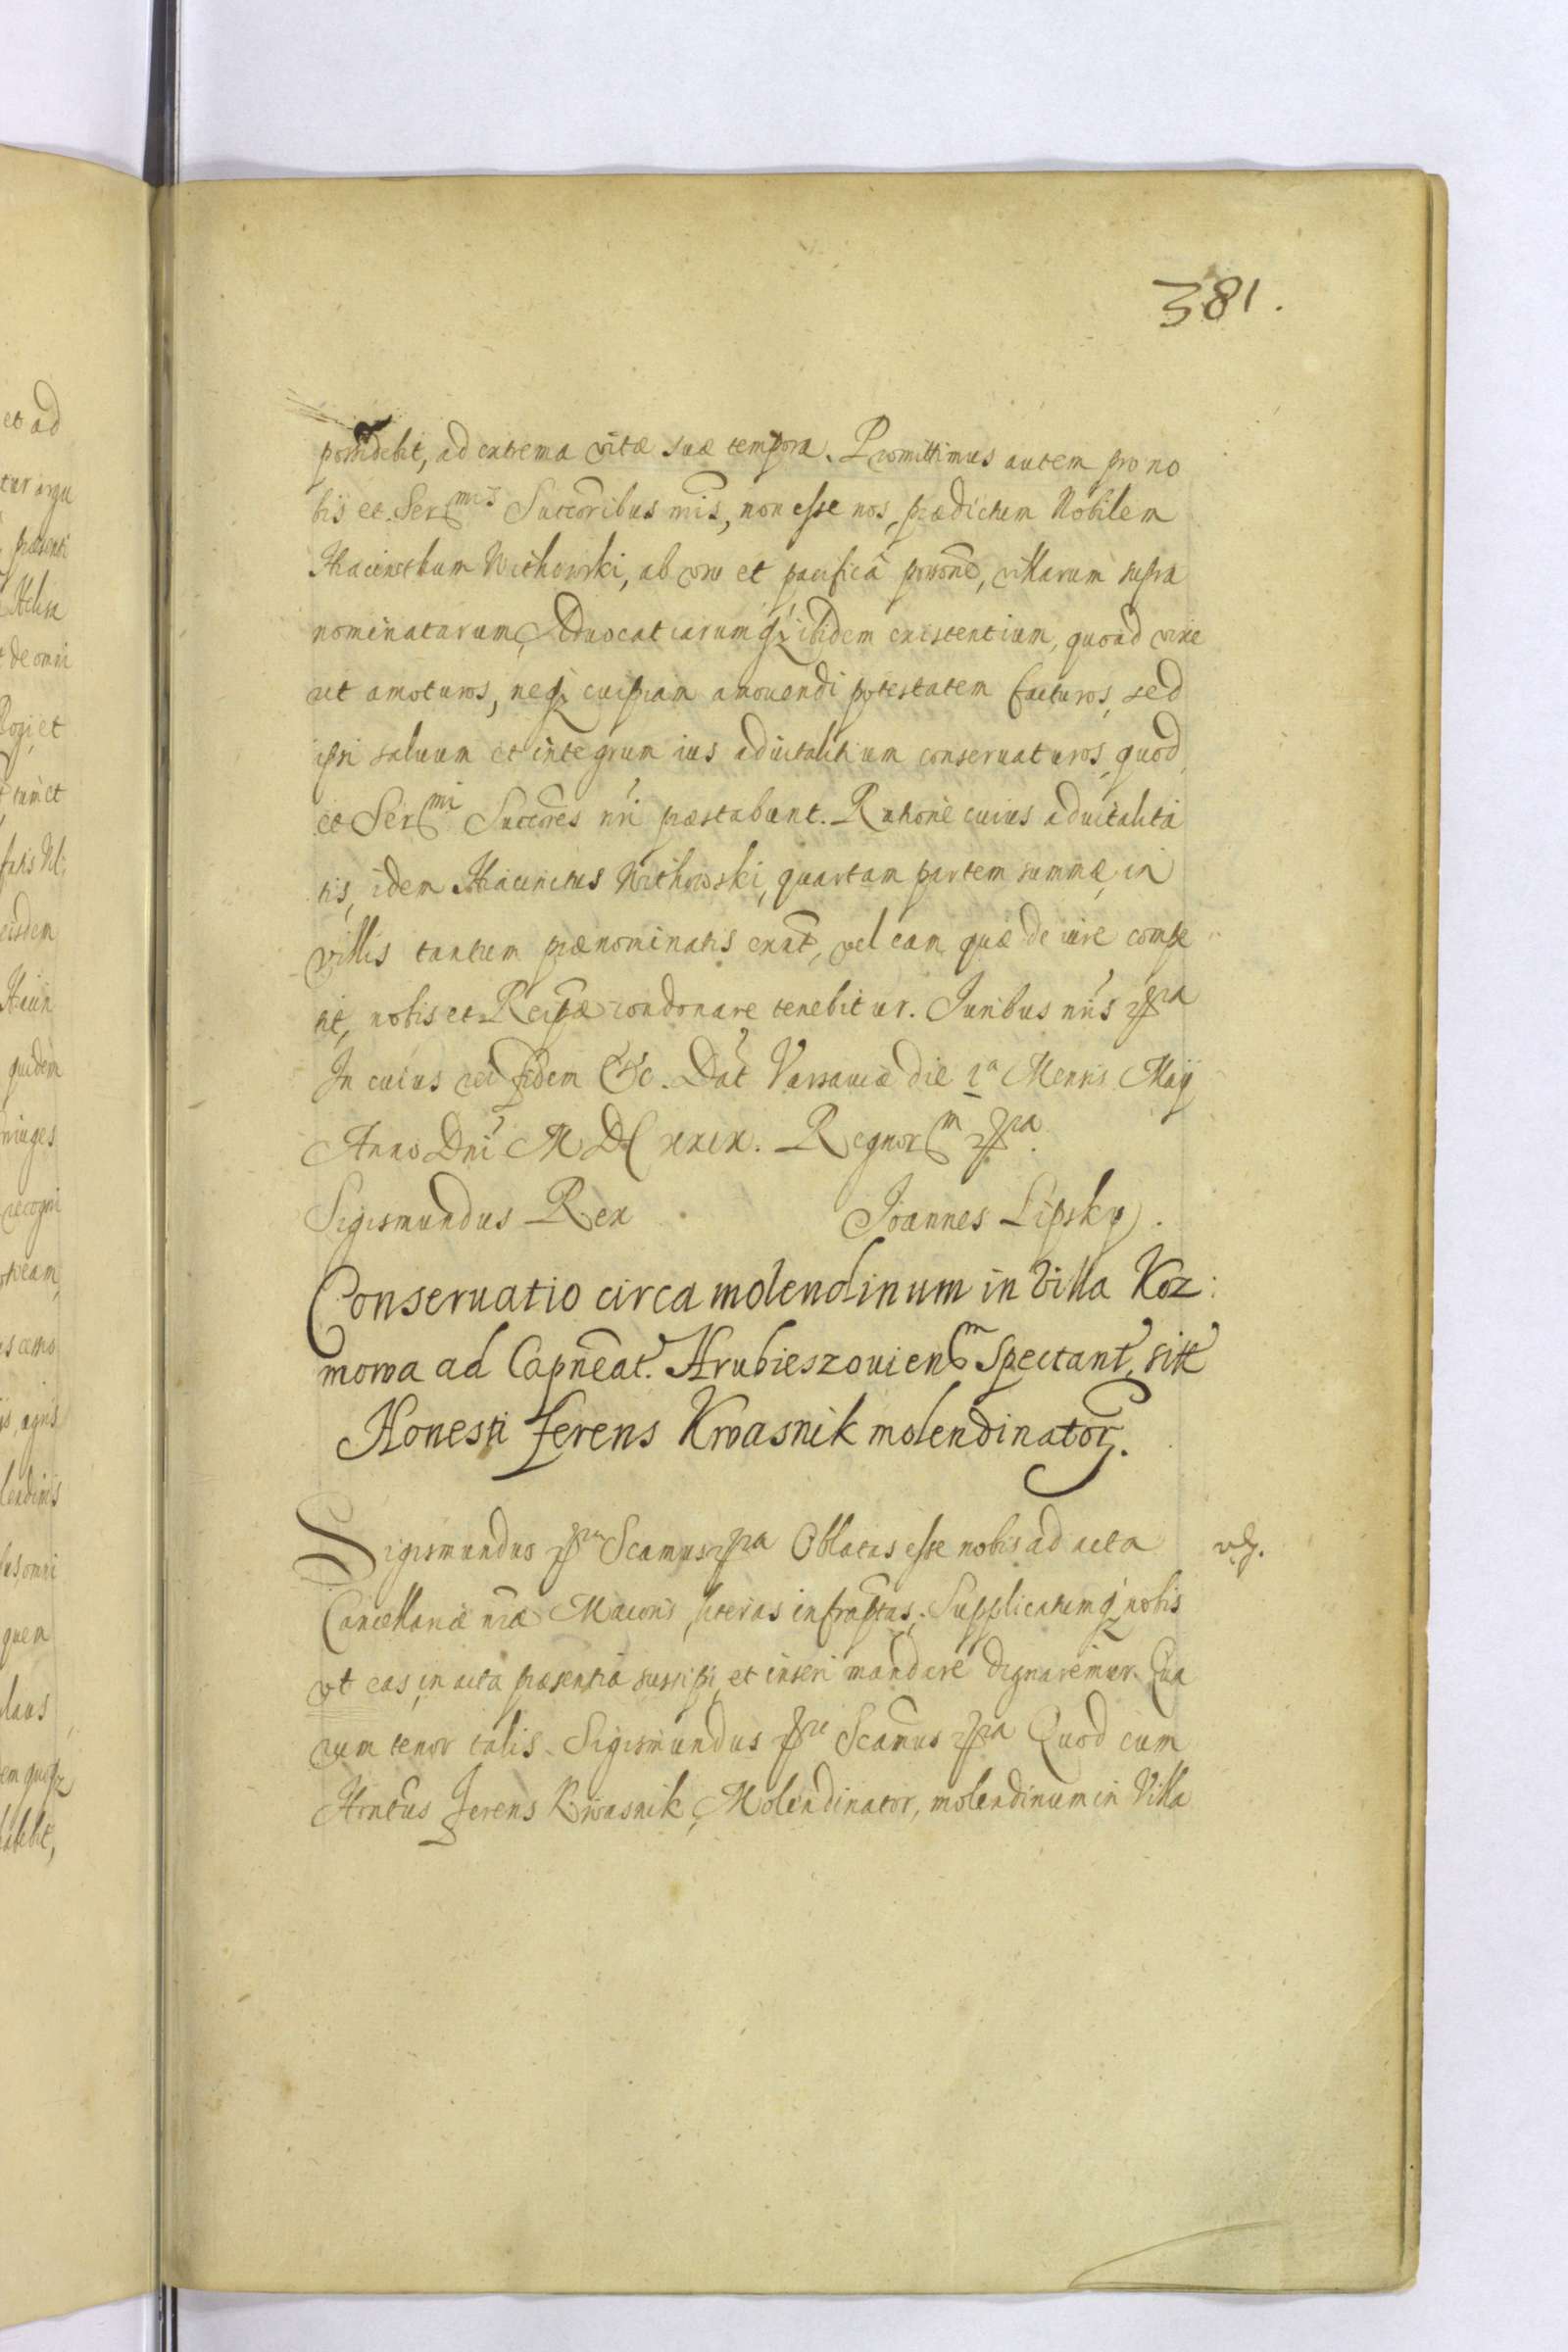 381.
possidebit, ad extrema vitæ suæ tempora. Promittimus autem pro no
bis et Ser^mis Succoribus nris, non esse nos, prædictum Nobilem
Hiacinctum Witkowski, ab usu et pacificâ possone, villarum supra
nominatarum, Aduocatiarumq ibidem existentium, quoad vixe
rit amoturos, neq cuipiam amouendi potestatem facturos, sed
ipsi saluum et integrum ius aduitalitium conseruaturos, quod
et Ser^mi Succores nri præstabunt. Ratione cuius aduitalita
tis, idem Hiacinctus Witkowski, quartam partem summæ, in
villis tantum prænominatis, vel eam quæ de iure compe
tit, nobis et Reipæ condonare tenebitur. Iuribus nris
In cuius rei fidem &c. Dat Varsauiæ die 1^a Mensis Maij
Anno Dni M DC xxix. Regnor^m
Sigismundus Rex Joannes Lipsky.
Conseruatio circa molendinum in Villa Koz:
mowa ad Capneat. Hrubieszouien^m Spectant, sitt
Honesti Ferens Kwasnik molendinator.
Sigismundus Scamus Oblatas esse nobis ad acta
Cancellariæ nræ Maioris, literas infraptas, Supplicatumq nobis
vt eas, in acta præsentia suscipi, et inseri mandare dignaremur. Qua
rum tenor talis. Sigismundus Scamus Quod cum
Hontus Ferens Kwasnik, Molendinator, molendinum in Villa
et ad
tur argu
præsenti
de omni
et
eisdem
quidem
recogni
agris
omni
quem